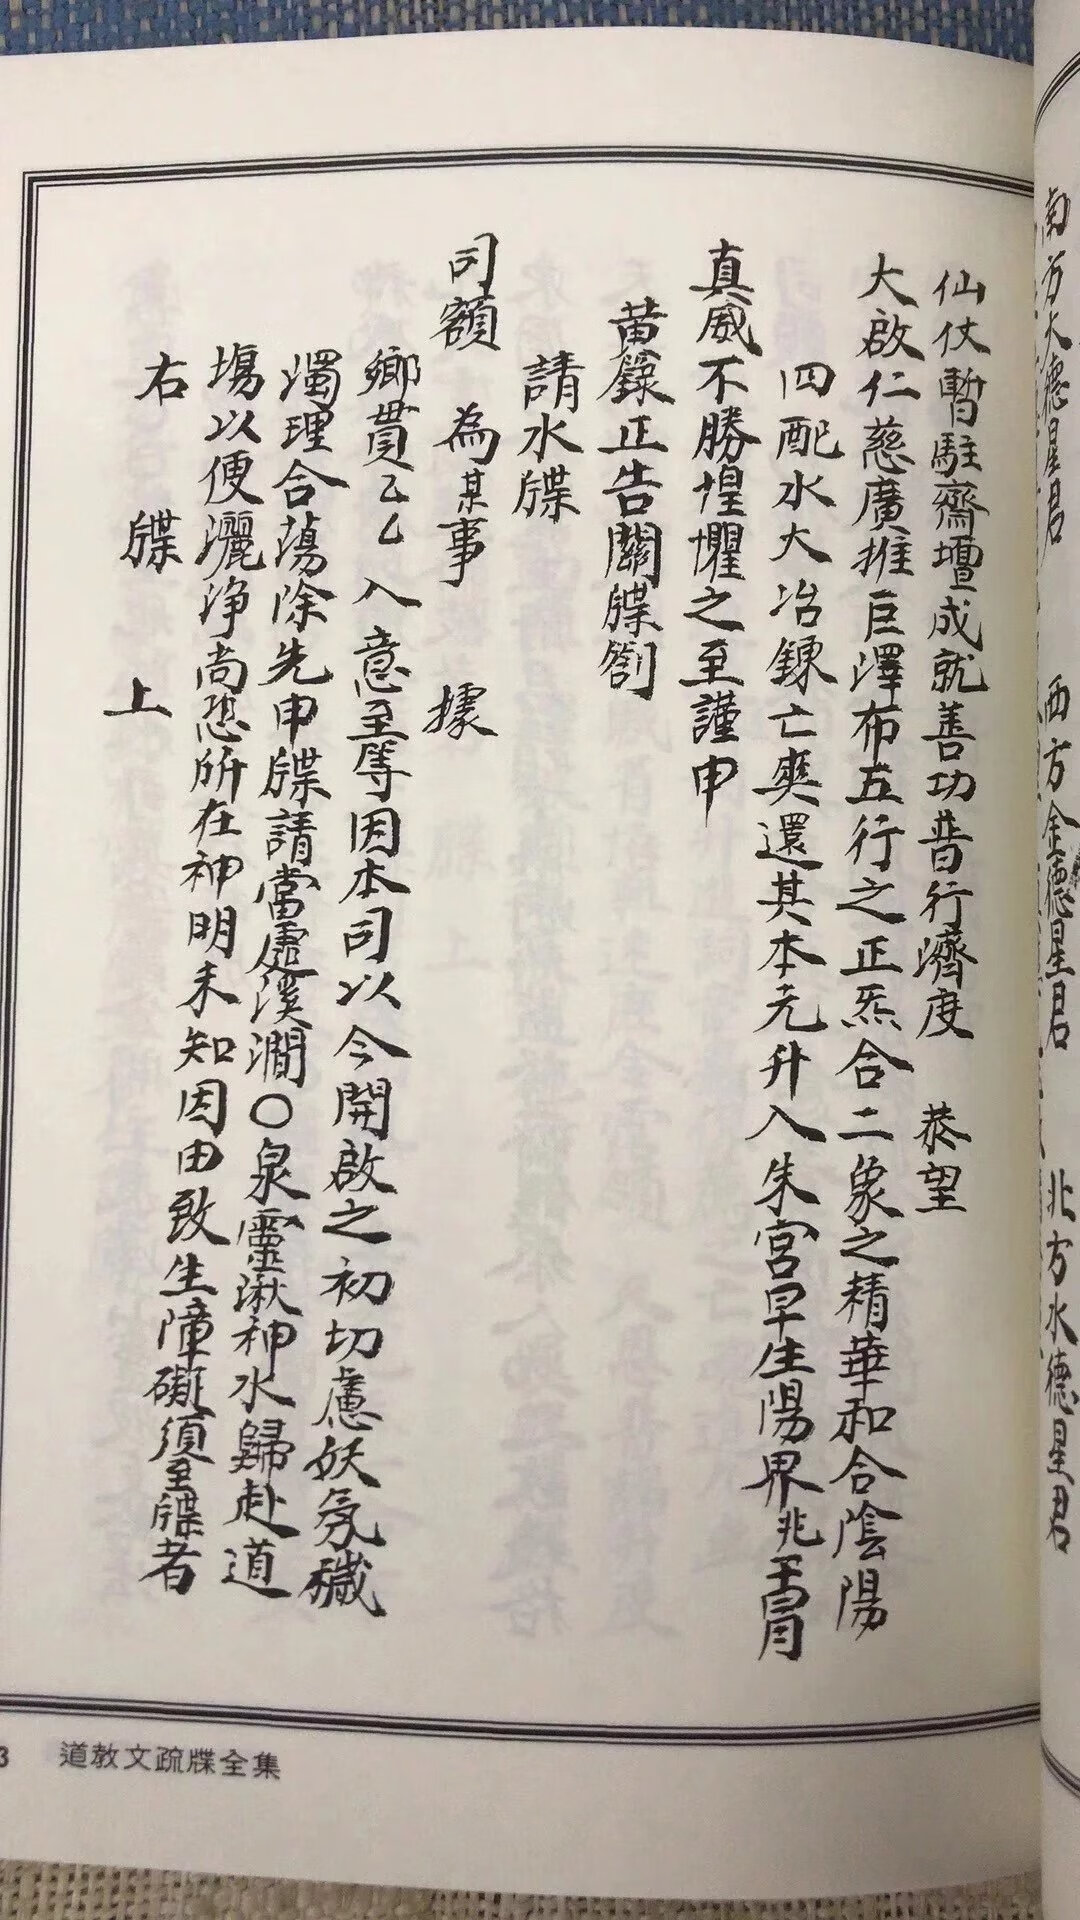 南方火德星君 西方金德星君 北方水德星君
仙仗暫駐齋壇成就善功普行濟度 恭望
大啟仁慈廣推巨澤布五行之正炁合二象之精華和合陰陽
四配水大冶鍊亡爽還其本元升入朱宮早生陽界兆干冐
真威不勝惶懼之至謹申
黃籙正告關牒劄
請水牒
司額 為某事 據
鄉貫乙乙入意至等因本司以今開啟之初切慮妖氛穢
濁理合蕩除先申牒請當處溪澗〇泉靈湫神水歸赴道
場以便灑淨尚恐所在神明未知因由致生障礙須至牒者
右 牒 上
3 道教文疏牒全集